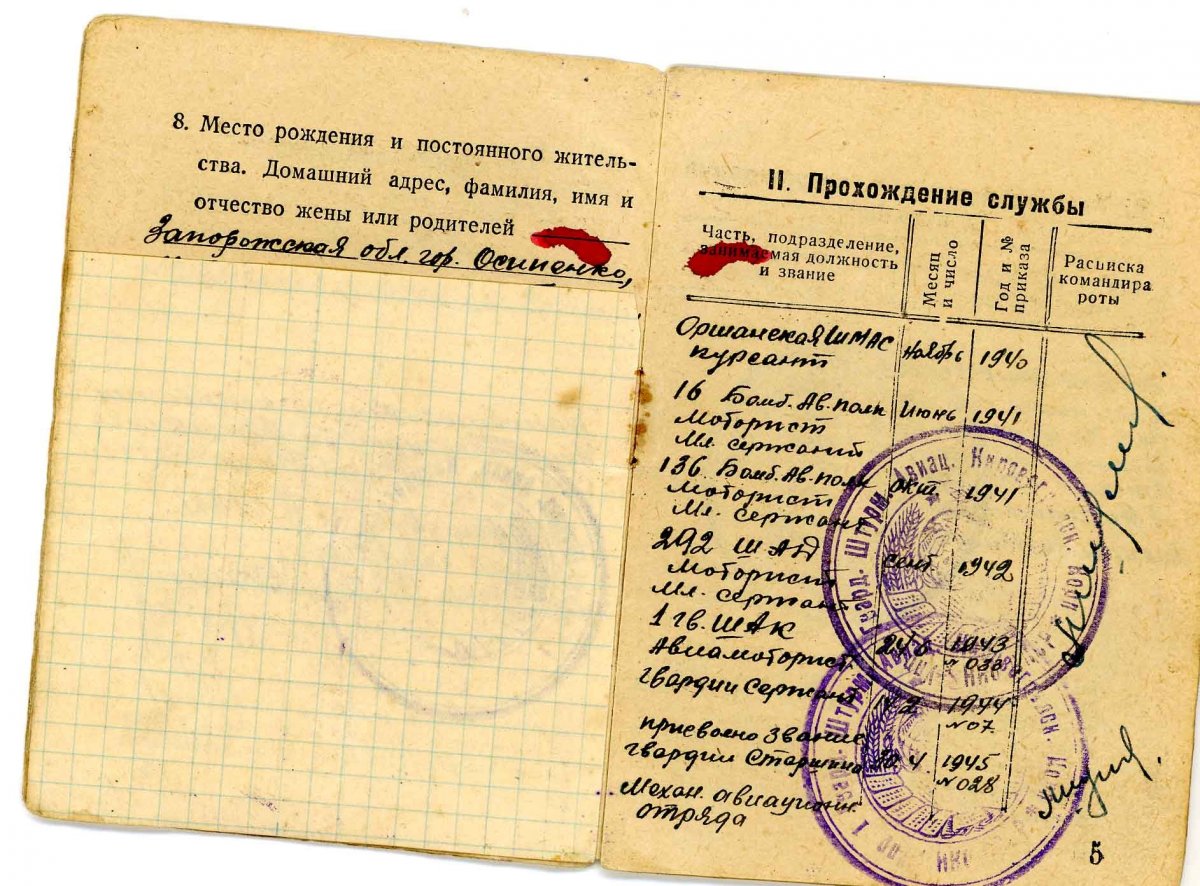 8. Место рождения и постоянного житель-
ства. Домашний адрес, фамилия, имя и
отчество жены или родителей
Запорожская обл. гор. Осипенко,
II. Прохождение службы
Часть, подразделение,
занимаемая должность
и звание
Месяц
и число
Год и №
приказа
Расписка
командира
роты
Оршанская ШМАС
курсант
ноябрь 1940
16 Бомб. Ав. полк
Июнь 1941
Моторист
Мл. сержант
136 Бомб. Ав. полк
окт 1941
Моторист
Мл. сержант
292 ШАД
сент. 1942
Моторист
Мл. сержант
1 гв. ШАК
Авиамоторист
24 8 1943
№ 036
гвардии Сержант
1944
№ 07
присвоено звание
гвардии Старшина
4 1945
№ 028
Механ. авиационн.
отряда
Гвард. Штурм. Авиац. Кировоград
Штурм
5